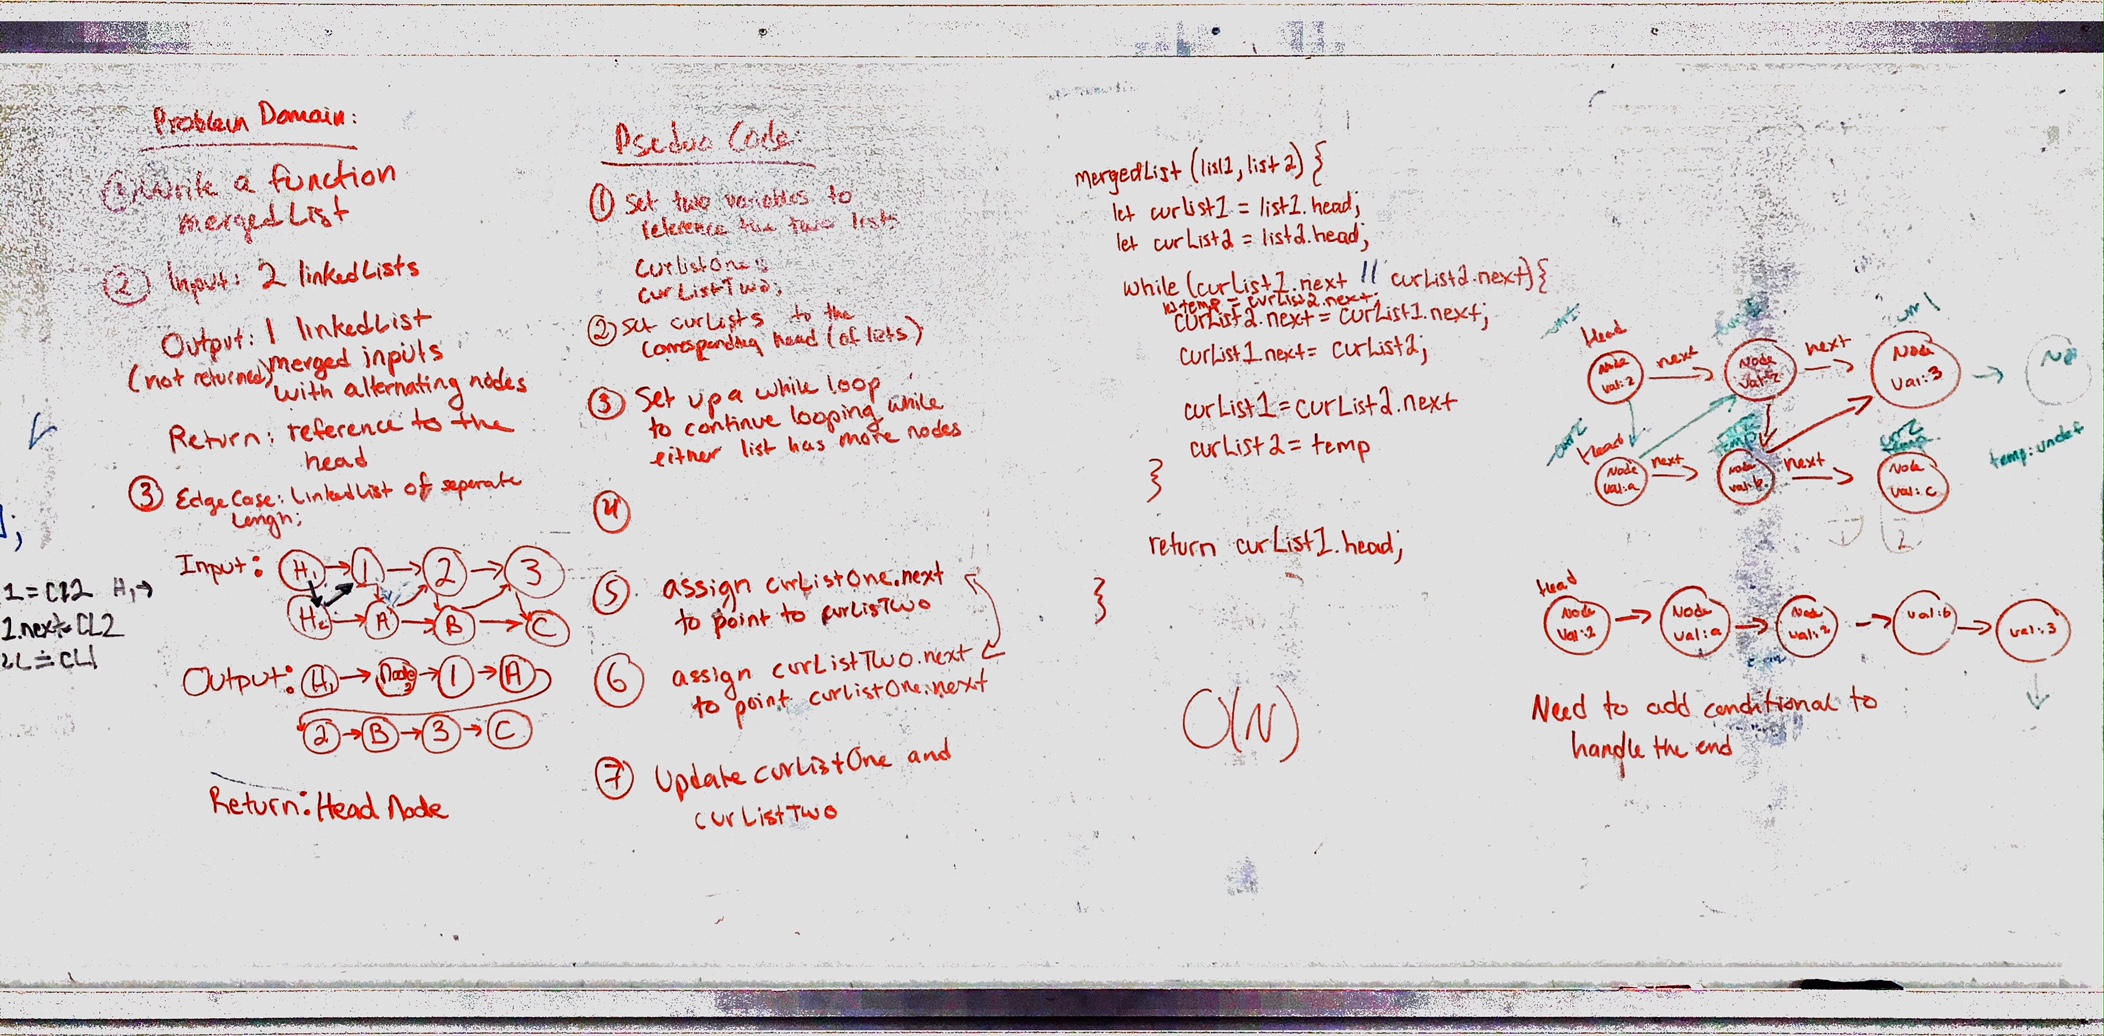 Problem Domain:
① Write a function
mergedList
② Input: 2 linkedLists
Output: 1 linkedList
(not returned) merged inputs
with alternating nodes
Return: reference to the
head
③ Edge Case: LinkedList of seperate
Lengh;
Input: H1 → 1 → 2 → 3
H2 → A → B → C
Output: H1 → Node2 → 1 → A
2 → B → 3 → C
Return: Head Node
1 = CL2 H1 →
1.next = CL2
2L = CL1
];
Pseduo Code:
① Set two variables to
reference the two lists
CurlistOne;
curListTwo;
② Set curLists to the
corresponding head (of lists)
③ Set up a while loop
to continue looping while
either list has more nodes
④
⑤ assign curListOne.next
to point to curListTwo
⑥ assign curListTwo.next
to point curlistOne.next
⑦ Update curListOne and
curListTwo
mergedList (list1, list2) {
let curList1 = list1.head;
let curList2 = list2.head;
while (curList1.next || curList2.next) {
let temp = curList2.next;
curList2.next = curList1.next;
curList1.next = curList2;
curList1 = curList2.next
curList2 = temp
}
return curList1.head;
}
O(N)
cur1
Head
Node
val:2
next
Node
val:2
next
cur1
Node
val:3
cur2
Head
Node
val:a
next
temp
Node
val:b
next
cur2
temp
Node
val:c
temp: undef
Head
Node
val:2
Node
val:a
Node
val:2
val:b
val:3
Need to add conditional to
handle the end